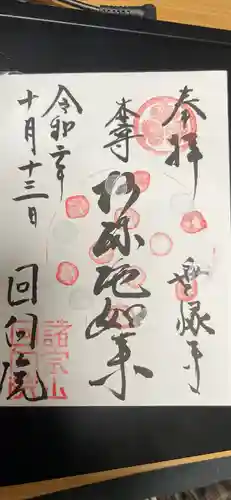 奉拝
無縁寺
本尊
阿弥陀如来
令和二年
十月十三日
回向院
諸宗山